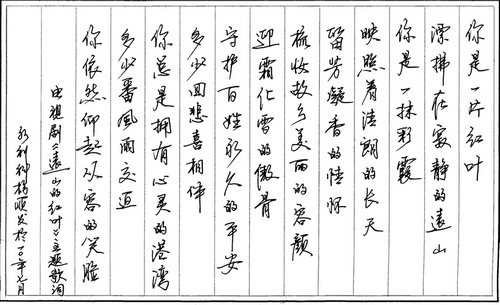 你是一片红叶
漂拂在寂静的远山
你是一抹彩霞
映照着清朗的长天
留芳凝香的情怀
梳妆故乡美丽的容颜
迎霜化雪的傲骨
守护百姓永久的平安
多少回悲喜相伴
你总是拥有心灵的港湾
多少番风雨交迫
你依然仰起从容的笑脸
电视剧《远山的红叶》主题歌词